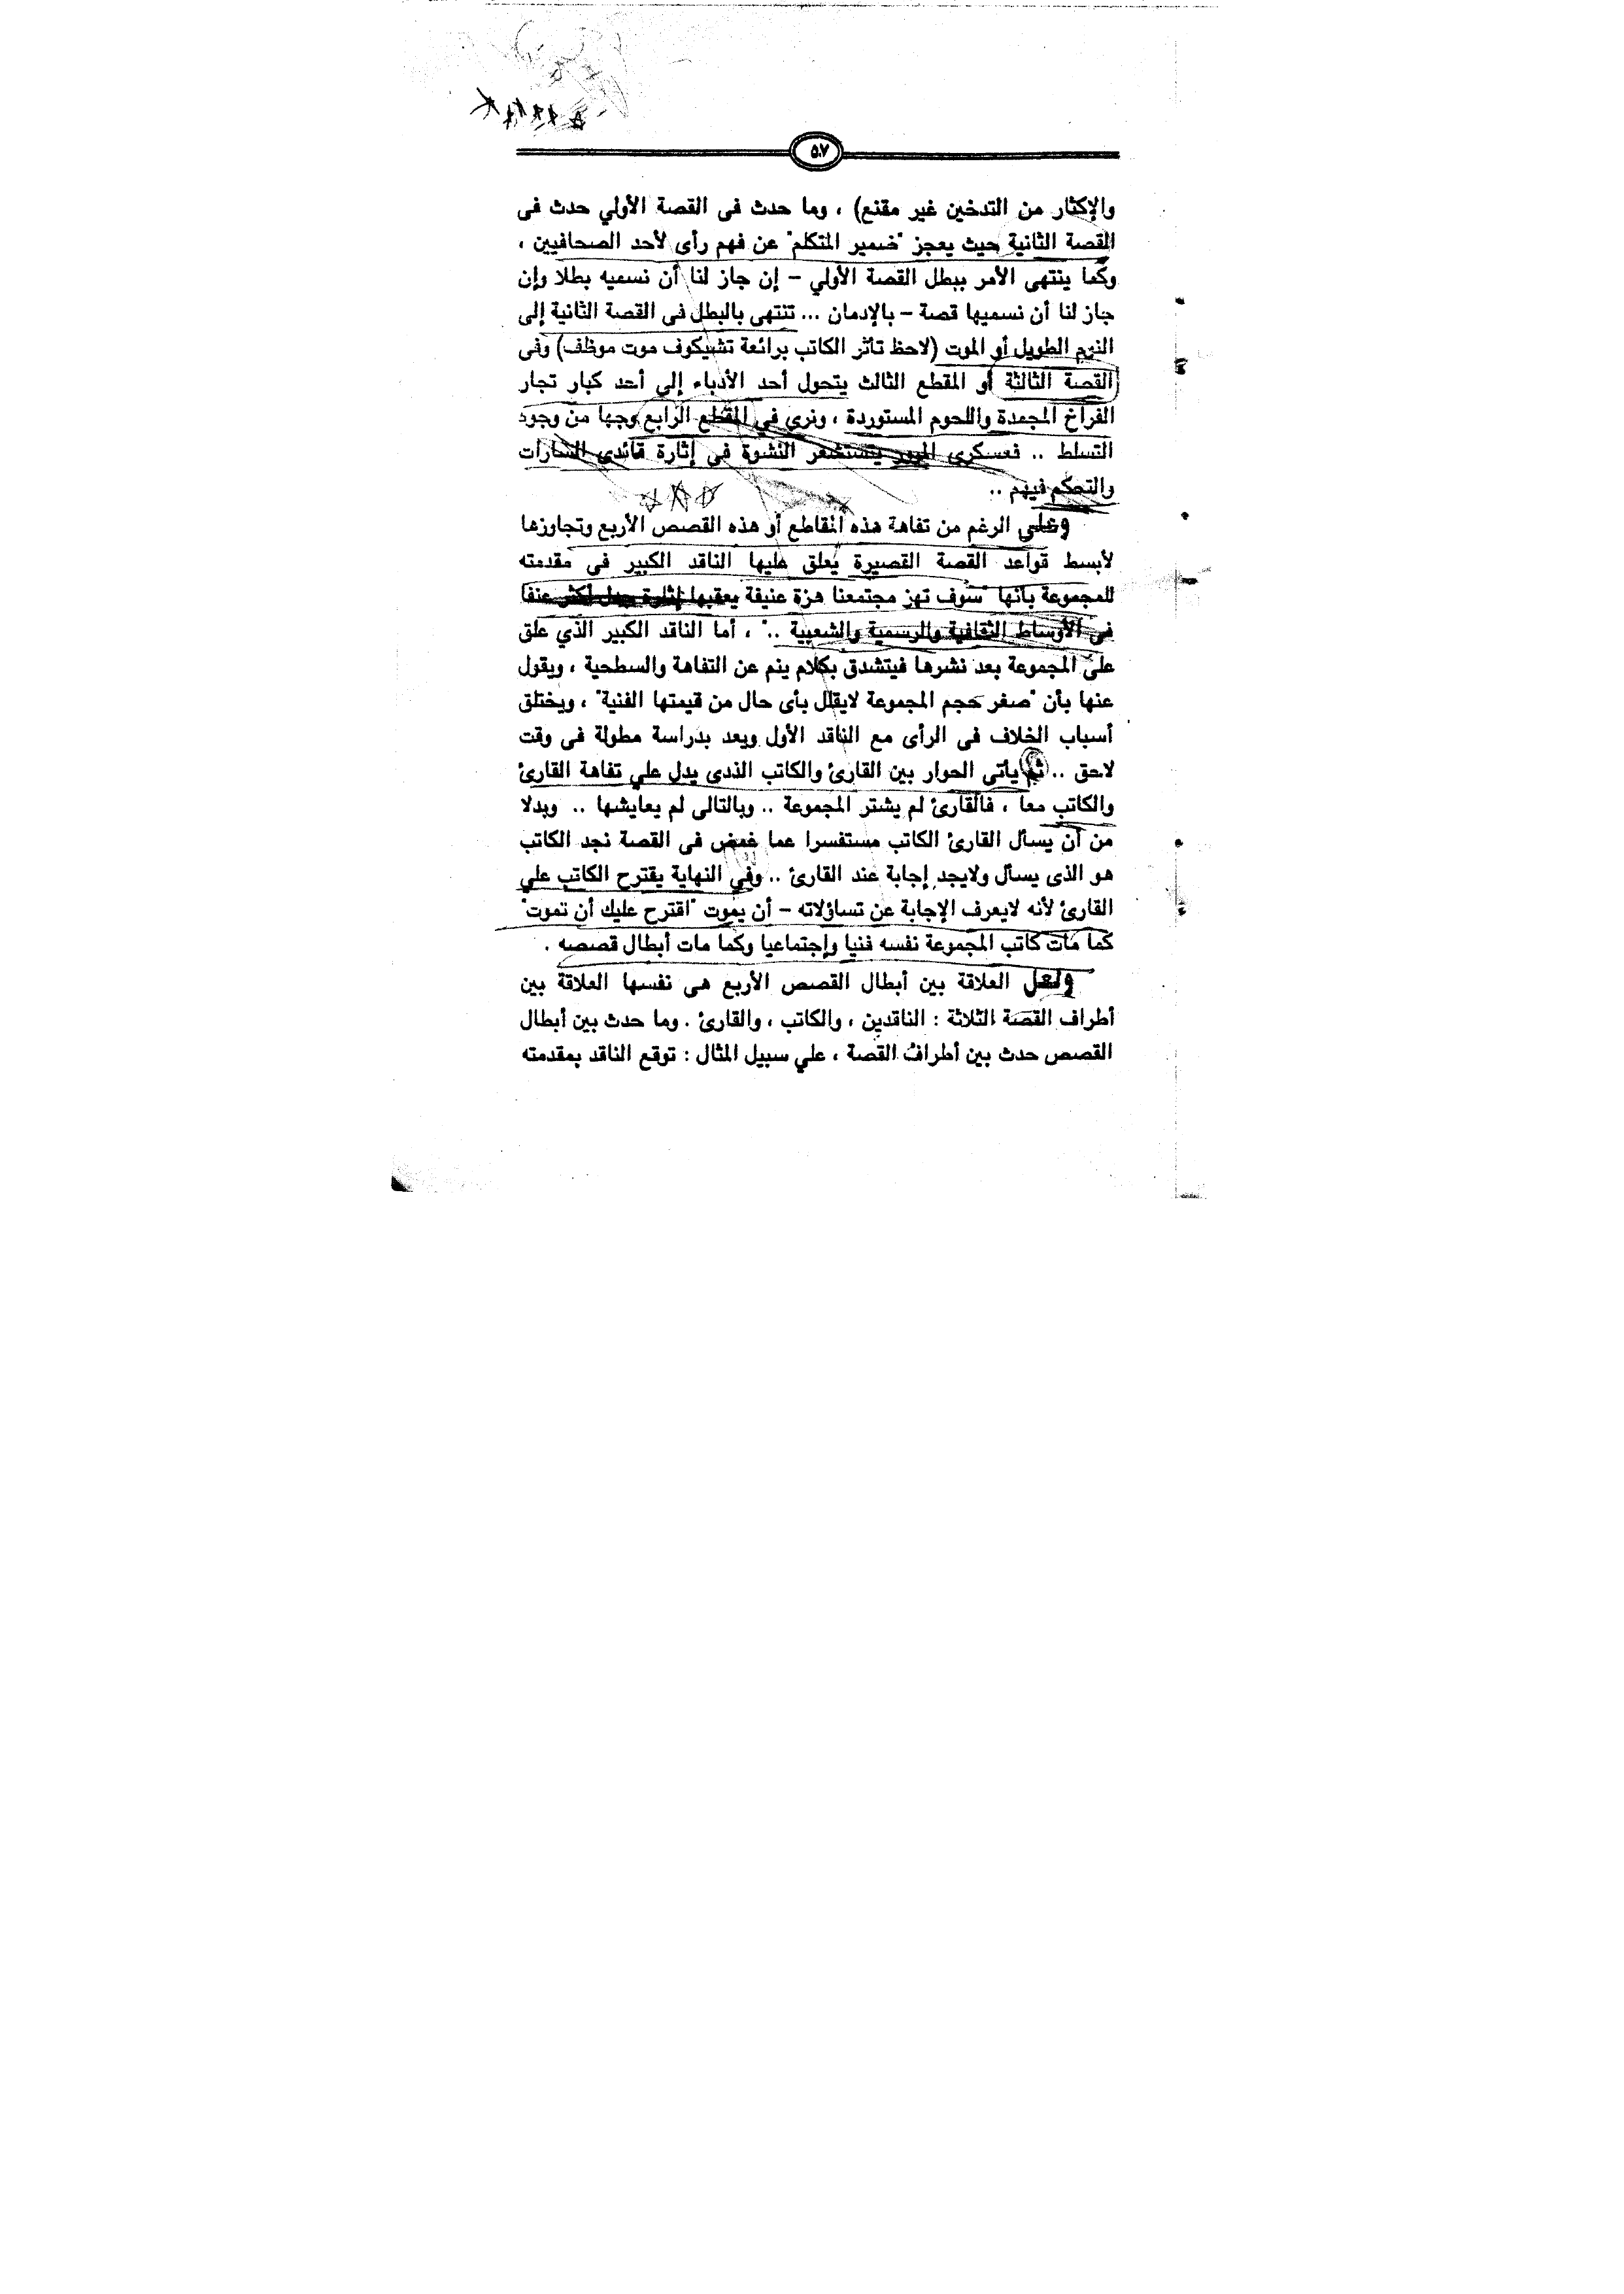 ٥٠٧
والإكثار من التدخين غير مقنع) ، وما حدث فى القصة الأولي حدث فى
القصة الثانية حيث يعجز "ضمير المتكلم" عن فهم رأى لأحد الصحافيين ،
وكما ينتهى الأمر ببطل القصة الأولي – إن جاز لنا أن نسميه بطلا وإن
جاز لنا أن نسميها قصة – بالإدمان ... تنتهى بالبطل فى القصة الثانية إلى
النوم الطويل أو الموت (لاحظ تأثر الكاتب برائعة تشيكوف موت موظف) وفى
القصة الثالثة أو المقطع الثالث يتحول أحد الأدباء إلي أحد كبار تجار
الفراخ المجمدة واللحوم المستوردة ، ونرى في المقطع الرابع وجها من وجود
التسلط .. فعسكرى المرور يستشعر النشوة في إثارة قائدى السيارات
والتحكم فيهم ..
وعلي الرغم من تفاهة هذه المقاطع أو هذه القصص الأربع وتجاوزها
لأبسط قواعد القصة القصيرة يعلق عليها الناقد الكبير في مقدمته
للمجموعة بأنها "سوف تهز مجتمعنا هزة عنيفة يعقبها إثارة جدل أكثر عنفا
في الأوساط الثقافية والرسمية والشعبية .." ، أما الناقد الكبير الذي علق
على المجموعة بعد نشرها فيتشدق بكلام ينم عن التفاهة والسطحية ، ويقول
عنها بأن "صغر حجم المجموعة لايقلل بأى حال من قيمتها الفنية" ، ويختلق
أسباب الخلاف فى الرأى مع الناقد الأول ويعد بدراسة مطولة فى وقت
لاحق .. ثم يأتى الحوار بين القارئ والكاتب الذدى يدل علي تفاهة القارئ
والكاتب معا ، فالقارئ لم يشتر المجموعة .. وبالتالى لم يعايشها .. وبدلا
من أن يسأل القارئ الكاتب مستفسرا عما غمض فى القصة نجد الكاتب
هو الذى يسأل ولايجد إجابة عند القارئ .. وفي النهاية يقترح الكاتب علي
القارئ لأنه لايعرف الإجابة عن تساؤلاته – أن يموت "اقترح عليك أن تموت"
كما مات كاتب المجموعة نفسه فنيا وإجتماعيا وكما مات أبطال قصصه .
ولعل العلاقة بين أبطال القصص الأربع هى نفسها العلاقة بين
أطراف القصة الثلاثة : الناقدين ، والكاتب ، والقارئ . وما حدث بين أبطال
القصص حدث بين أطراف القصة ، علي سبيل المثال : توقع الناقد بمقدمته